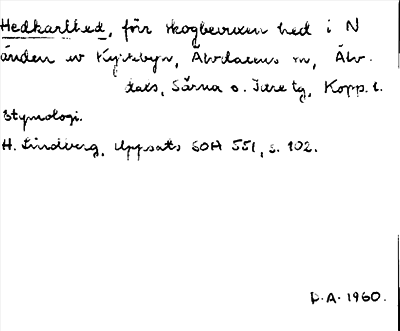 Hedkarlhed, för skogbevuxen hed i N
änden av Kyrkbyn, Älvdalens sn, Älv-
dals, Särna o. Idre tg, Kopp. l.
Etymologi.
H. Lindberg, Uppsats SOH 551, s. 102.
D.A. 1960.